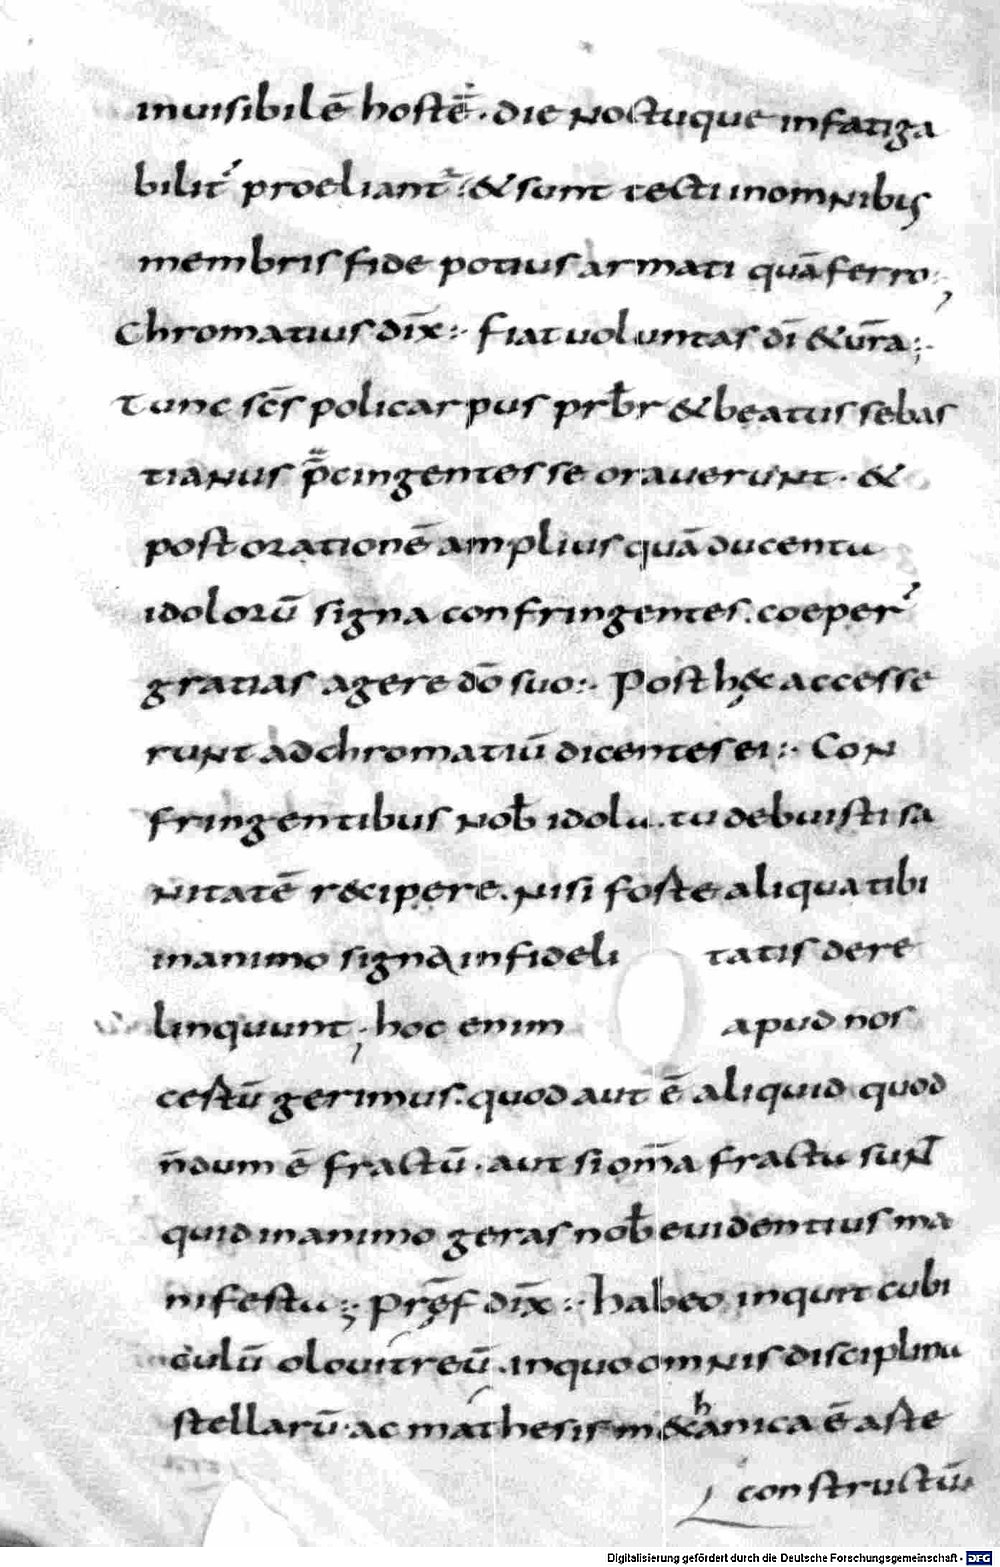 inuisibilē hostē. die noctuque infatiga
bilit̓ proeliant̓. & sunt tecti inomnibus
membris fide potius armati quā ferro;
Chromatius dix̄:· fiat uoluntas dī & ur̄a:·
Tunc sc̄s policarpus prb̄r & beatus sebas
tianus p̄cingentes se orauerunt. &
post orationē amplius quā ducenta
idolorū signa confringentes. coeper̓
gratias agere dō suo:· Post hęc accesse
runt ad chromatiū dicentes ei:· Con
fringentibus nob̄ idola. tu debuisti sa
nitatē recipere. nisi forte aliqua tibi
inanimo signa infideli tatis dere
linquunt; hoc enim apud nos
certū gerimus. quod aut ē aliquid quod
n̄dum ē fractū. aut si om̄a fracta sunt̄
quid inanimo geras nob̄ euidentius ma
nifesta; Pręf dix̄:· habeo inquit cubi
culū olouitreū. inquo omnis disciplina
stellarū. ac mathesis m&hanica ē arte
constructū